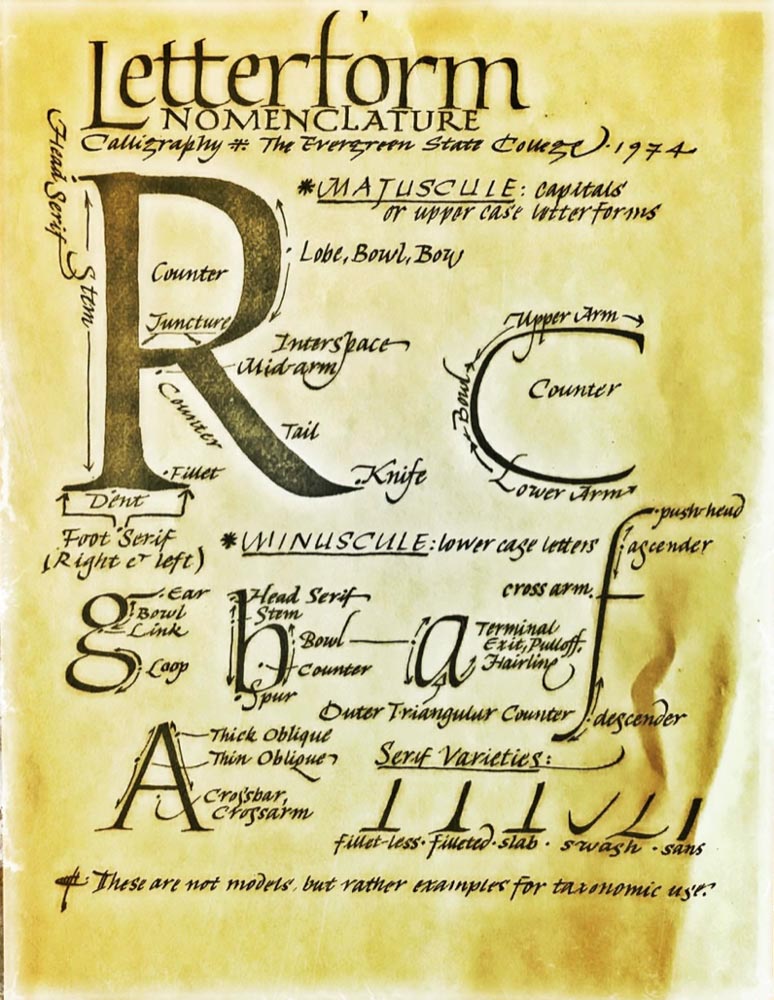 Letterform
NOMENCLATURE
Calligraphy : The Evergreen State College · 1974
Head Serif
Stem
R
Counter
Juncture
Counter
Fillet
Dent
Foot Serif
(Right & left)
* MAJUSCULE: capitals
or upper case letterforms
Lobe, Bowl, Bow
Interspace
Mid-arm
Tail
Knife
C
Upper Arm
Counter
Bowl
Lower Arm
* MINUSCULE: lower case letters
f
push-head
ascender
cross arm
descender
g
Ear
Bowl
Link
Loop
b
Head Serif
Stem
Bowl
Counter
Spur
a
Terminal
Exit, Pulloff,
Hairline
Outer Triangular Counter
A
Thick Oblique
Thin Oblique
Crossbar,
Crossarm
Serif Varieties:
fillet-less · filleted · slab · swash · sans
These are not models, but rather examples for taxonomic use.